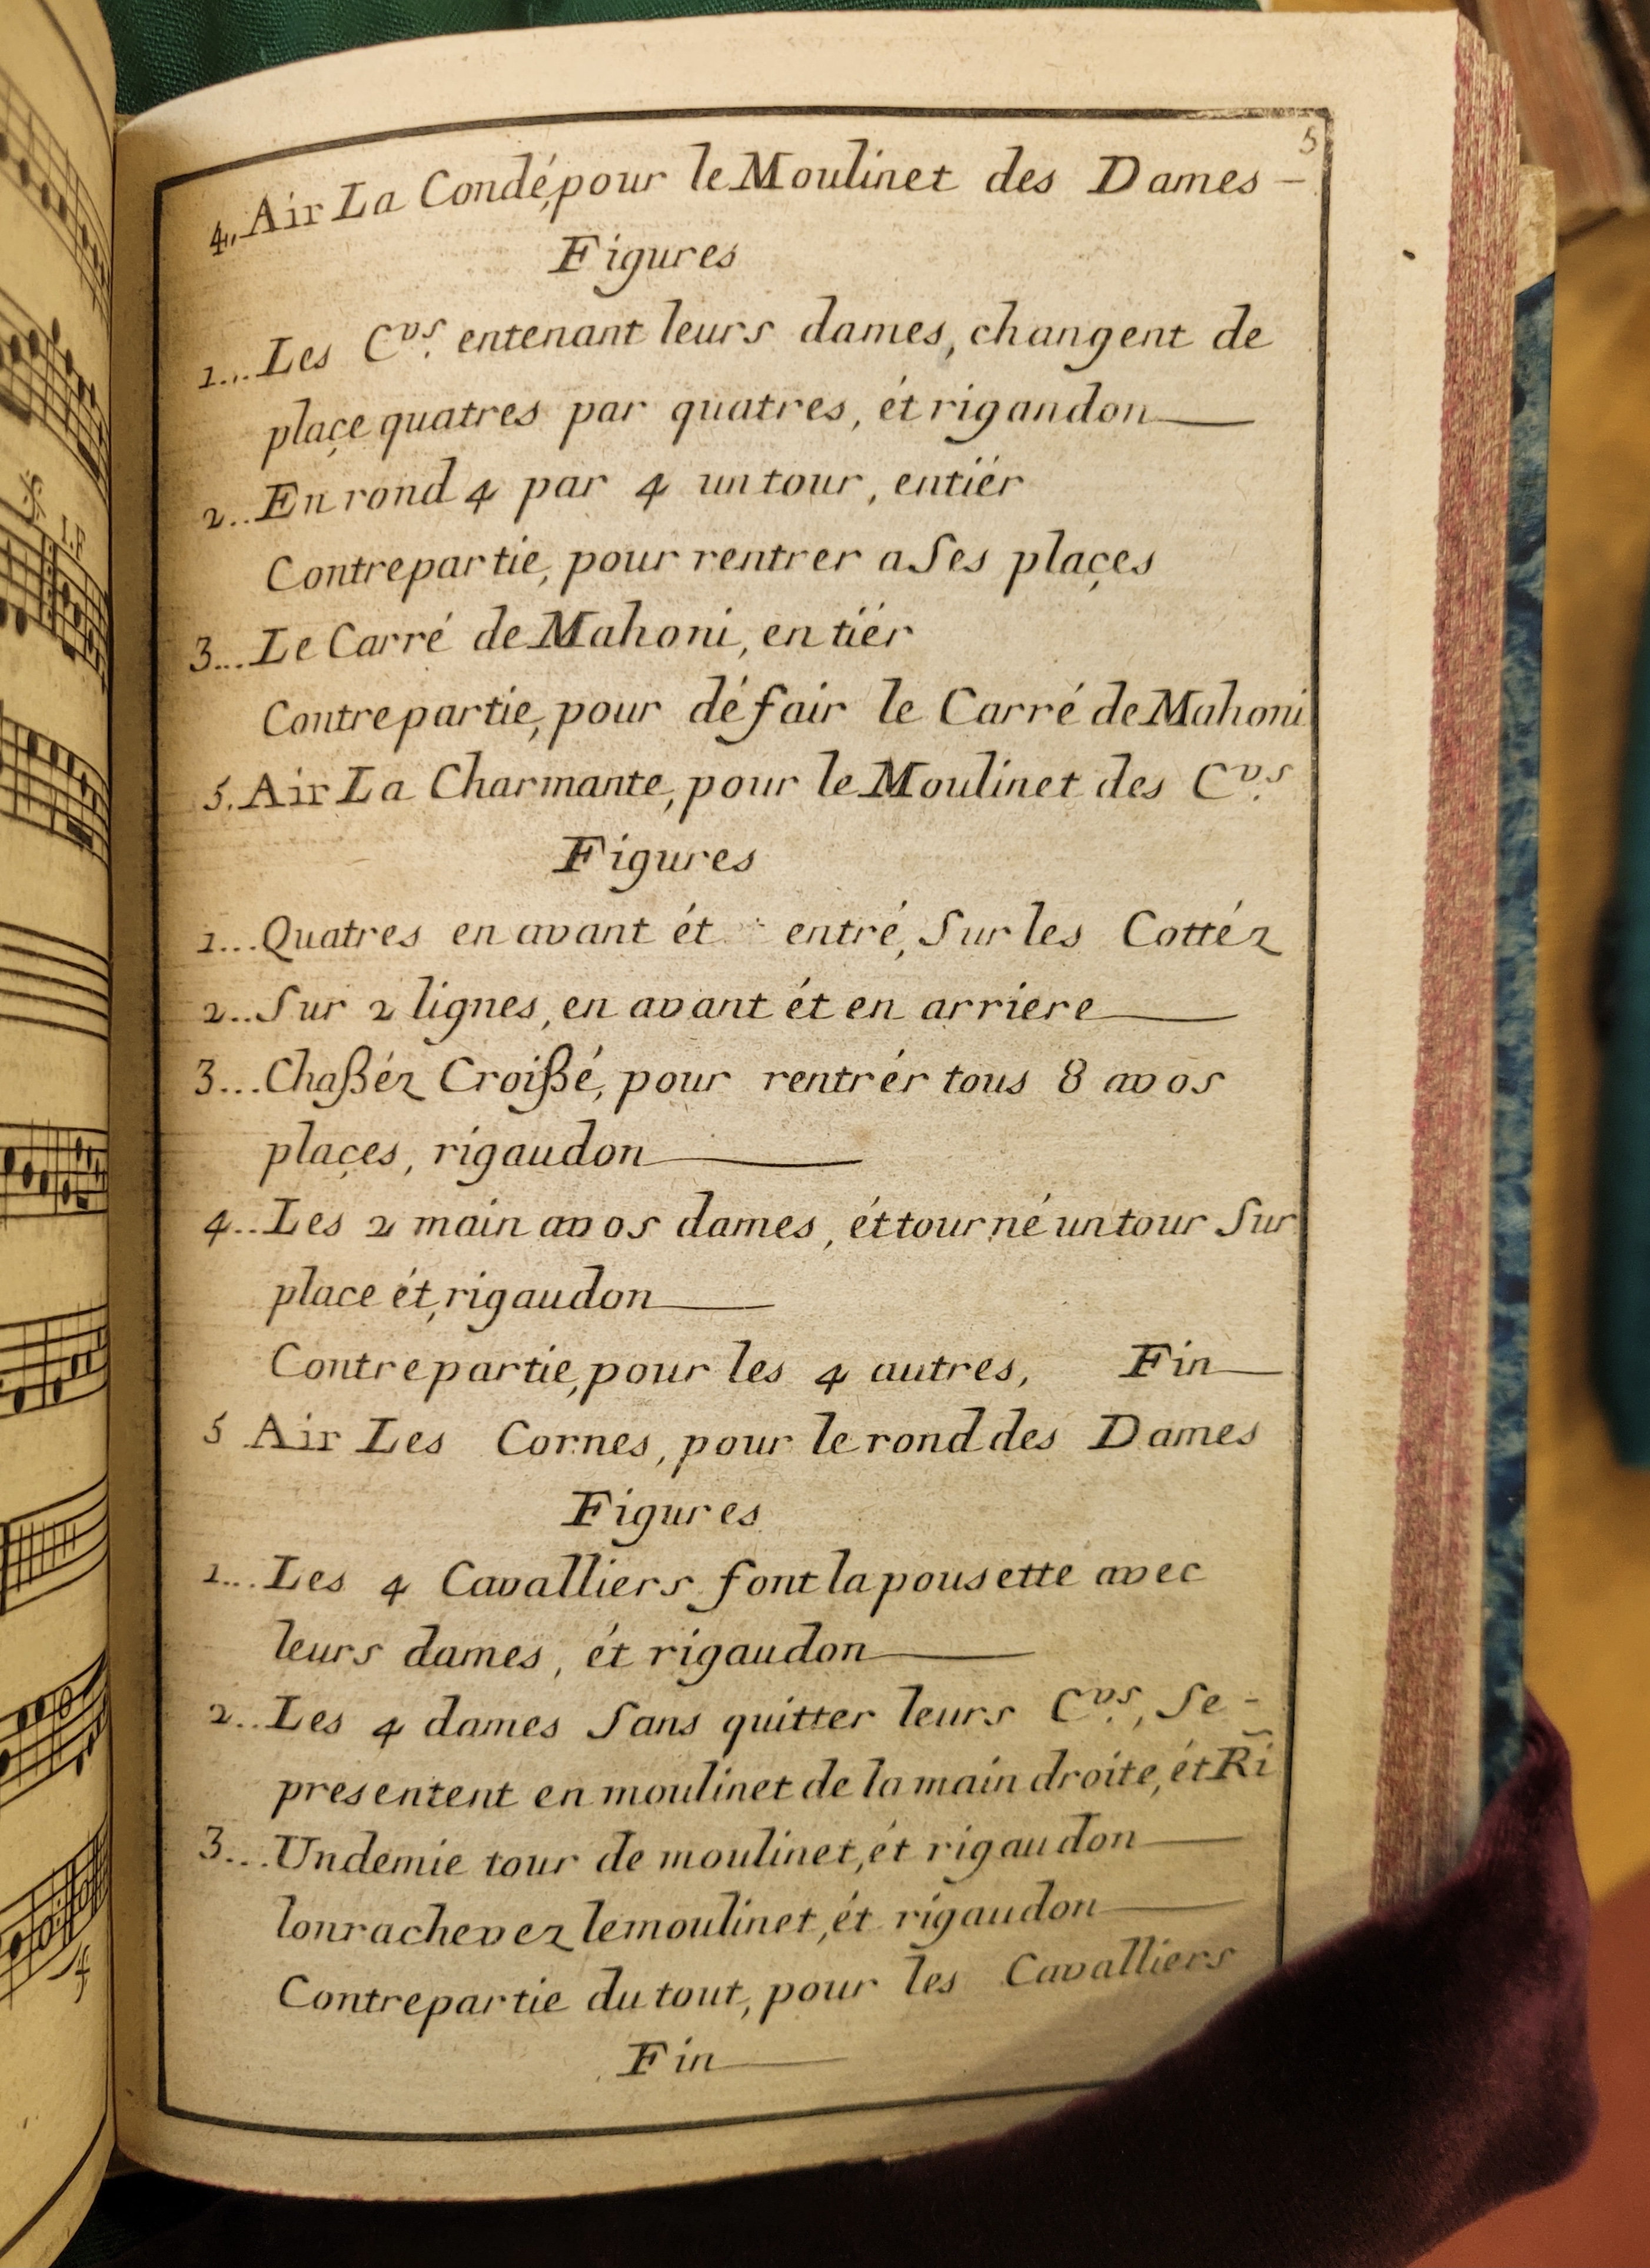 5
4. Air La Condé, pour le Moulinet des Dames -
Figures
1... Les Cvs. entenant leurs dames, changent de
plaçe quatres par quatres, ét rigandon
2.. En rond 4 par 4 un tour, entiér
Contrepartie, pour rentrer a Ses plaçes
3... Le Carré de Mahoni, entiér
Contrepartie, pour défair le Carré de Mahoni
5. Air La Charmante, pour le Moulinet des Cvs.
Figures
1... Quatres en avant ét entré, Sur les Cottéz
2.. Sur 2 lignes, en avant ét en arriere
3... Chaßéz Croißé, pour rentrér tous 8 avos
plaçes, rigaudon
4.. Les 2 main avos dames, ét tourné un tour Sur
place ét, rigaudon
Contrepartie, pour les 4 autres, Fin
5 Air Les Cornes, pour le rond des Dames
Figures
1... Les 4 Cavalliers font la pousette avec
leurs dames, ét rigaudon
2.. Les 4 dames Sans quitter leurs Cvs., Se -
presentent en moulinet de la main droite, ét Ri
3... Undemie tour de moulinet, ét rigaudon
lonrachevez le moulinet, ét rigaudon
Contrepartie du tout, pour les Cavalliers
Fin